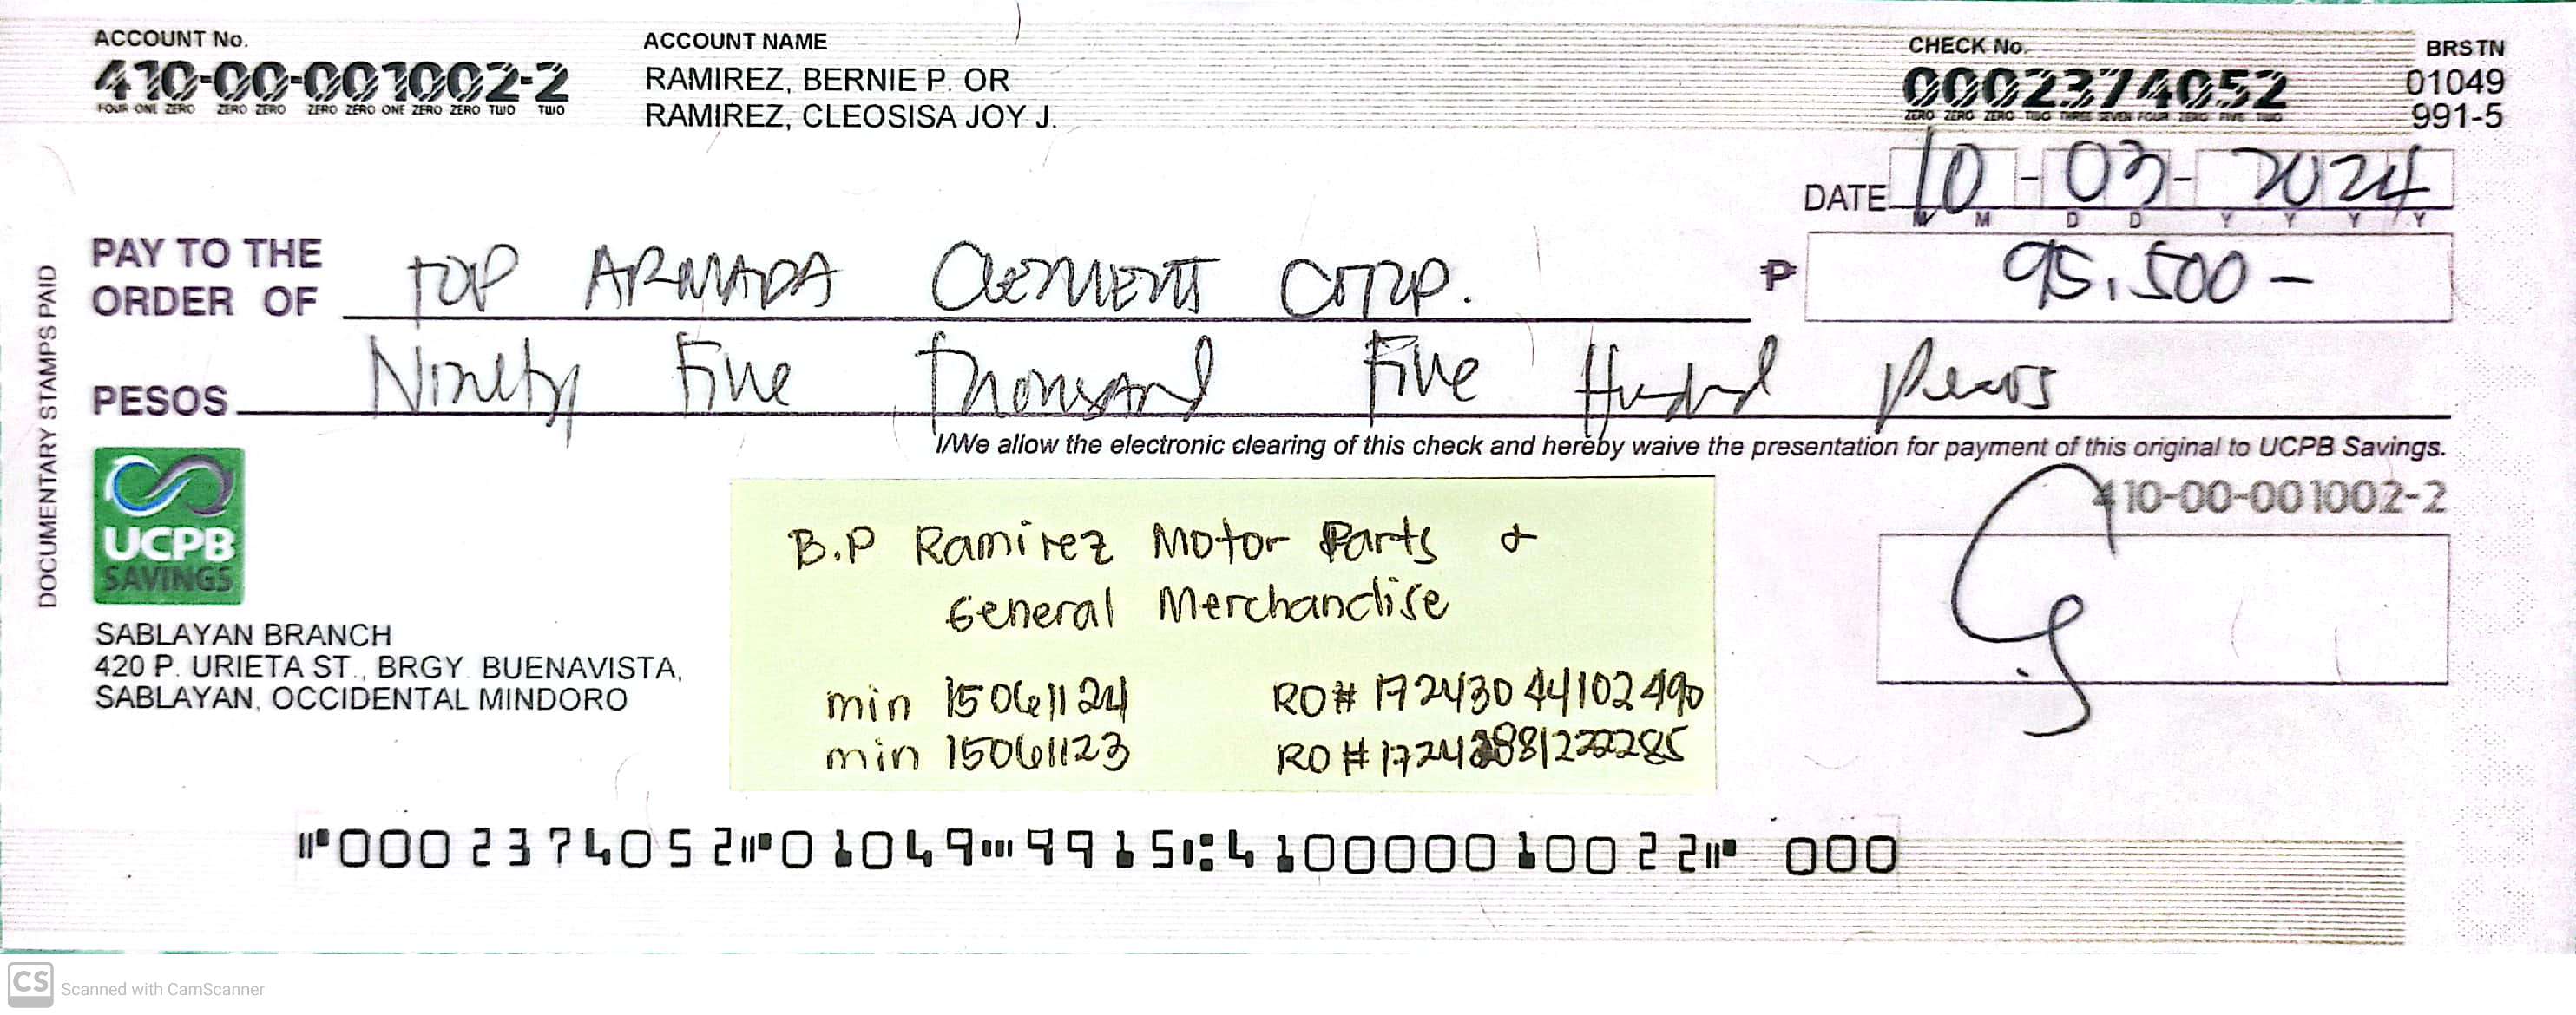 ACCOUNT No.
410-00-001002-2
FOUR ONE ZERO ZERO ZERO ZERO ZERO ONE ZERO ZERO TWO TWO
ACCOUNT NAME
RAMIREZ, BERNIE P. OR
RAMIREZ, CLEOSISA JOY J.
CHECK No.
0002374052
ZERO ZERO ZERO TWO THREE SEVEN FOUR ZERO FIVE TWO
BRSTN
01049
991-5
DATE 10-03-2024
M M D D Y Y Y Y
PAY TO THE
ORDER OF TOP ARMADA CEMENT CORP.
₱ 95,500-
PESOS Ninety Five Thousand Five Hundred Pesos
I/We allow the electronic clearing of this check and hereby waive the presentation for payment of this original to UCPB Savings.
DOCUMENTARY STAMPS PAID
UCPB
SAVINGS
410-00-001002-2
SABLAYAN BRANCH
420 P. URIETA ST., BRGY. BUENAVISTA,
SABLAYAN, OCCIDENTAL MINDORO
B.P Ramirez Motor Parts &
General Merchandise
min 15061124 RO# 1724304410249 0
min 15061123 RO#
⑈0002374052⑈01049⑉9915⑆410000010022⑈ 000
CS Scanned with CamScanner